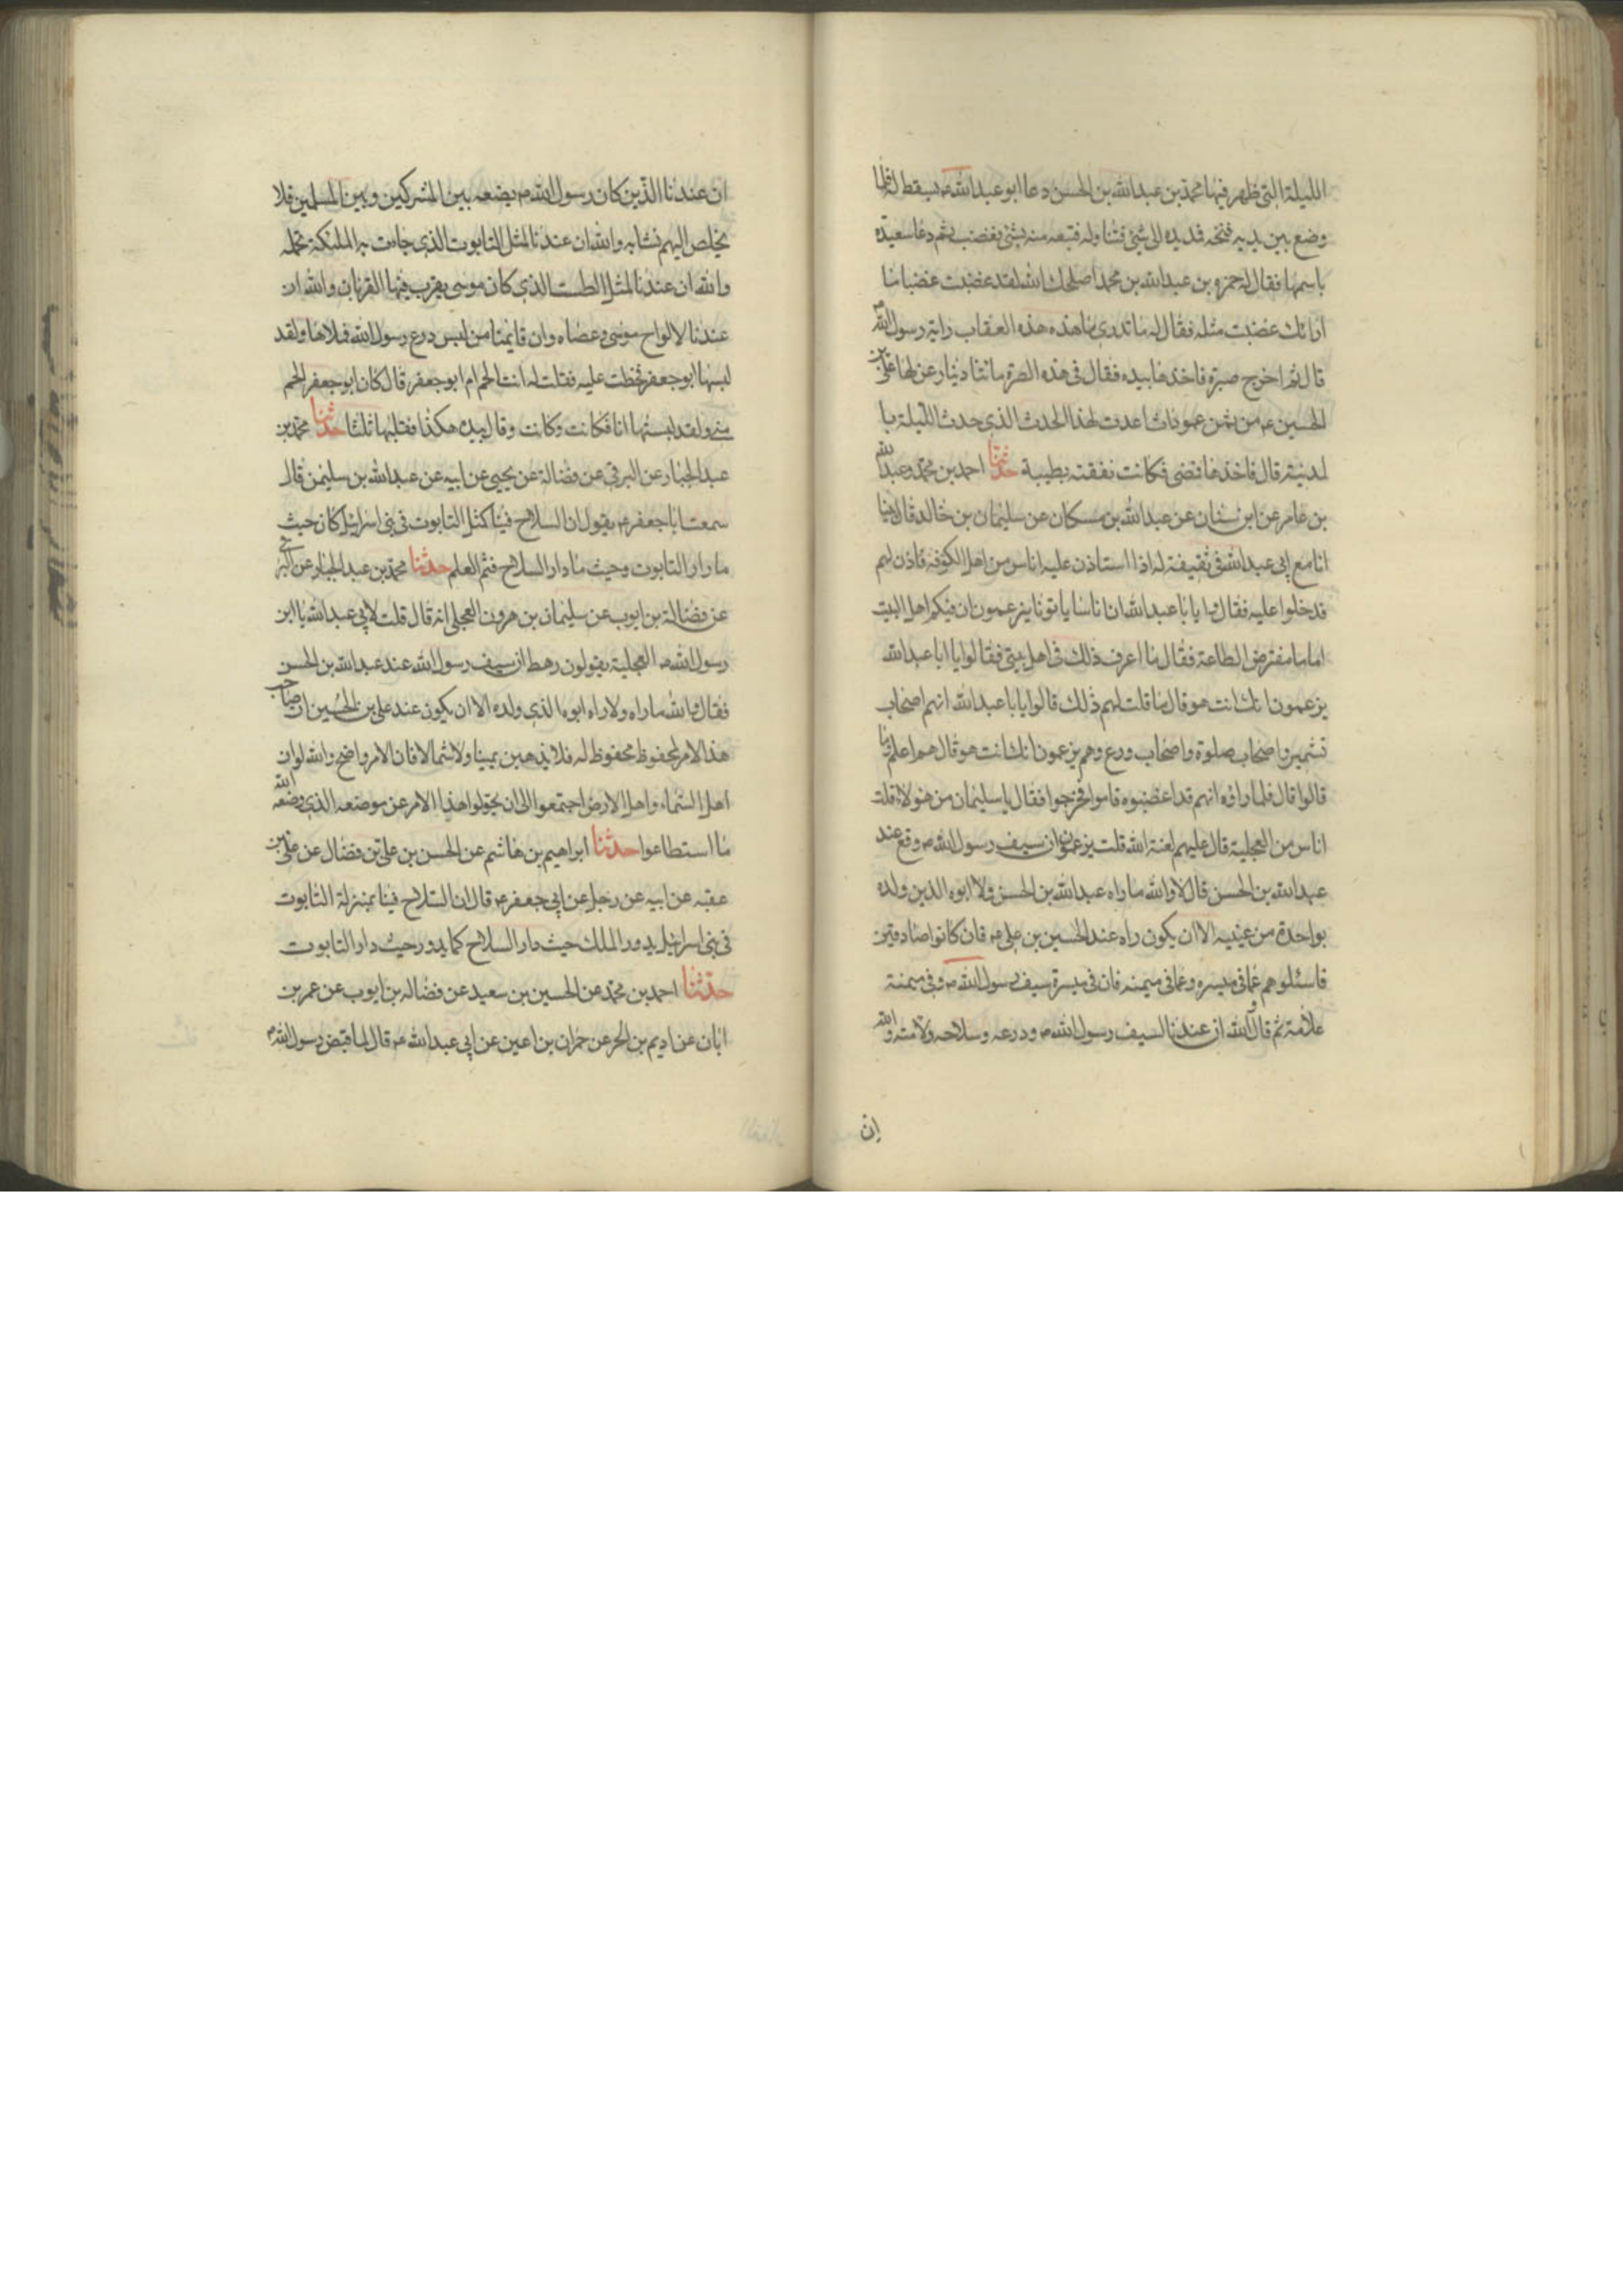 الليلة التي ظهر فيها محمد بن عبدالله بن الحسن دعا ابو عبدالله ع بسفط له فلما
وضع بين يديه فتحه فمد يده الى شئ فتناوله فتبعه منه شئ فغضب ثم دعا سعيدة
باسمها فقال له حمزة بن عبدالله بن محمد اصلحك الله لقد غضبت غضبا ما
اراك غضبت مثله فقال له ما تدرى ما هذه هذه العقاب راية رسول الله ص
قال ثم اخرج صرة فاخذها بيده فقال فى هذه الصرة مائتا دينار عزلها على بن
الحسين ع من ثمن عمودان اعدت لهذا الحدث الذى حدث الليلة با
لمدينة قال فاخذها فمضى فكانت نفقته بطيبة حدثنا احمد بن محمد وعبدالله
بن عامر عن ابن سنان عن عبدالله بن مسكان عن سليمان بن خالد قال بينا
انا مع ابى عبدالله فى ثقيفة له اذا استاذن عليه اناس من اهل الكوفة فاذن لهم
فدخلوا عليه فقالوا يا با عبدالله ان اناسا ياتونا يزعمون ان فيكم اهل البيت
اماما مفترض الطاعة فقال ما اعرف ذلك فى اهل بيتى فقالوا يا ابا عبدالله
يزعمون انك انت هو قال ما قلت لهم ذلك قالوا يا با عبدالله انهم اصحاب
تشمير واصحاب صلوة واصحاب ورع وهم يزعمون انك انت هو قال هم اعلم وما
قالوا قال فلما راوه انهم قد اغضبوه قاموا فخرجوا فقال يا سليمان من هولاء قلت
اناس من العجلية قال عليهم لعنة الله قلت يزعمون ان سيف رسول الله ص وقع عند
عبدالله بن الحسن قال لا والله ما راه عبدالله بن الحسن ولا ابوه الذين ولده
بواحدة من عينيه الا ان يكون راه عند الحسين بن على ع فان كانوا صادقين
فاسئلوهم عما فى ميسره وعما فى ميمنه فان فى ميسرة سيف رسول الله ص وفى ميمنة
علامة ثم قال والله ان عندنا لسيف رسول الله ص ودرعه وسلاحه ولامته والله
ان
ان عندنا الذين كان رسول الله ص يضعه بين المشركين وبين المسلمين فلا
يخلص اليهم نشابه والله ان عندنا لمثل التابوت الذى جاءت به الملئكة تحمله
والله ان عندنا لمثل الطست الذى كان موسى يقرب فيها القربان والله ان
عندنا لالواح موسى وعصاه وان قائمنا من لبس درع رسول الله فملاها ولقد
لبسها ابو جعفر فخطت عليه فقلت له انت الحم ام ابو جعفر قال كان ابو جعفر الحم
منى ولقد لبستها انا فكانت وكانت وقال بيده هكذا فقلبها ثلثا حدثنا محمد بن
عبد الجبار عن البرقى عن فضالة عن يحيى عن ابيه عن عبدالله بن سليمن قال
سمعت ابا جعفر ع يقول ان السلاح فينا كمثل التابوت فى بنى اسرائيل كان حيث
ما دار التابوت وحيث ما دار السلاح فثم العلم حدثنا محمد بن عبد الجبار عن البرقى
عن فضالة بن ايوب عن سليمان بن هرون العجلى انه قال قلت لابى عبدالله يا ابن
رسول الله ص العجلية يقولون رهط ان سيف رسول الله عند عبدالله بن الحسن
فقال والله ما راه ولا راه ابوه الذى ولده الا ان يكون عند على بن الحسين ان صاحب
هذا الامر لمحفوظ محفوظ له فلا يذهبن يمينا ولا شمالا فان الامر واضح والله لو ان
اهل السماء واهل الارض اجتمعوا الى ان يحولوا هذا الامر عن موضعه الذى وضعه الله
ما استطاعوا حدثنا ابراهيم بن هاشم عن الحسن بن على بن فضال عن على بن
عقبه عن ابيه عن رجل عن ابى جعفر ع قال ان السلاح فينا بمنزلة التابوت
فى بنى اسرائيل يدور الملك حيث دار السلاح كما يدور حيث دار التابوت
حدثنا احمد بن محمد عن الحسين بن سعيد عن فضاله بن ايوب عن عمر بن
ابان عن اديم بن الحر عن حمران بن اعين عن ابى عبدالله ع قال لما قبض رسول الله ص